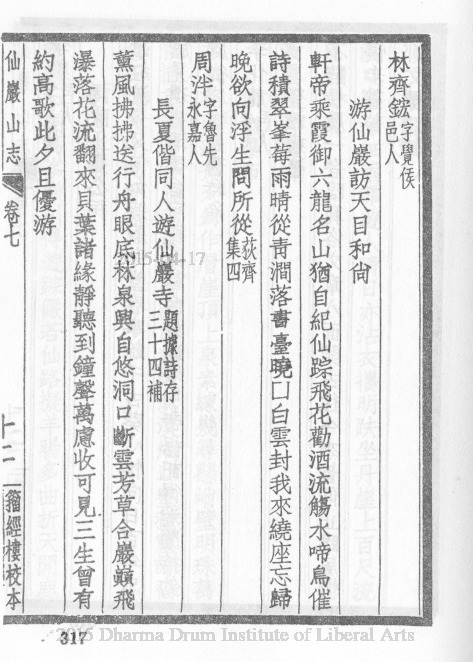 林齊鋐字覺侯邑人
游仙巖訪天目和尙
軒帝乘霞御六龍名山猶自紀仙踪飛花勸酒流觴水啼鳥催
詩積翠峯莓雨晴從青澗落書臺曉口白雲封我來繞座忘歸
晚欲向浮生問所從荻齊集四
周泮字魯先永嘉人
長夏偕同人遊仙巖寺題據詩存三十四補
薰風拂拂送行舟眼底林泉興自悠洞口斷雲芳草合巖巔飛
瀑落花流翻來貝葉諸緣靜聽到鐘聲萬慮收可見三生曾有
約高歌此夕且優游
仙巖山志
卷七
十二
籀經樓校本
317
2015-04-17
2015 Dharma Drum Institute of Liberal Arts